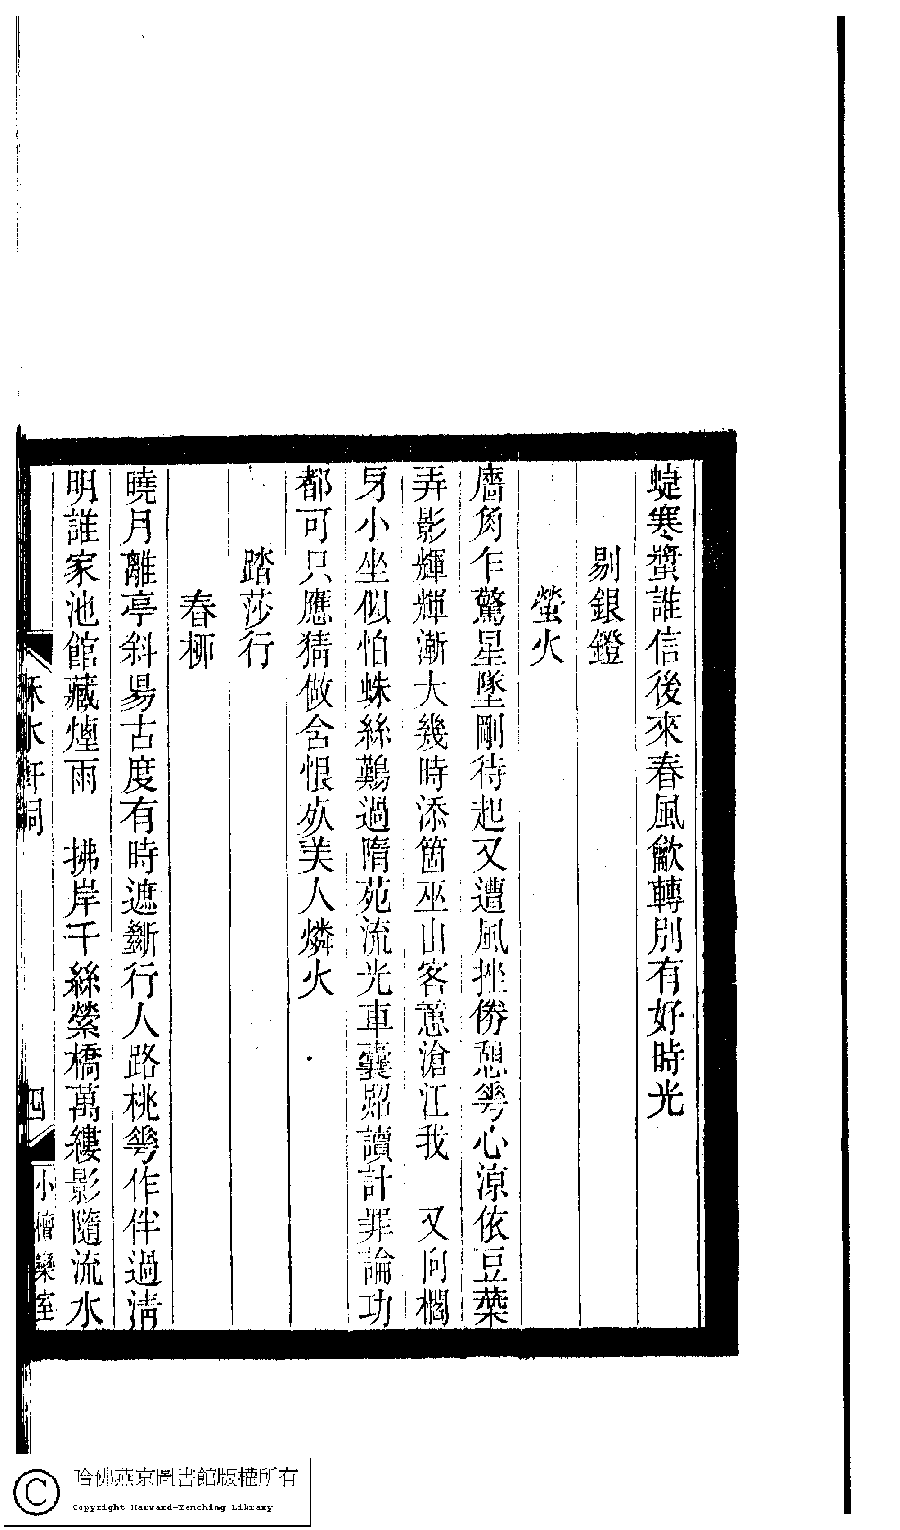 蜨寒螿誰信後來春風歈轉別有好時光
剔銀鐙
螢火
牆角乍驚星墜剛待起又遭風挫傍憩蕐心涼依豆葉
弄影輝輝漸大幾時添箇巫山客蒠滄江我　又向櫊
身小坐似怕蛛絲鷬過隋苑流光車囊照讀計罪論功
都可只應猜做含恨㱦美人燐火
踏莎行
春桺
曉月離亭斜昜古度有時遮斷行人路桃蕐作伴過清
明誰家池館藏煙雨　拂岸千絲縈橋萬縷影隨流水
水軒詞
四
小檀欒室
哈佛燕京圖書館版權所有
Copyright Harvard-Yenching Library